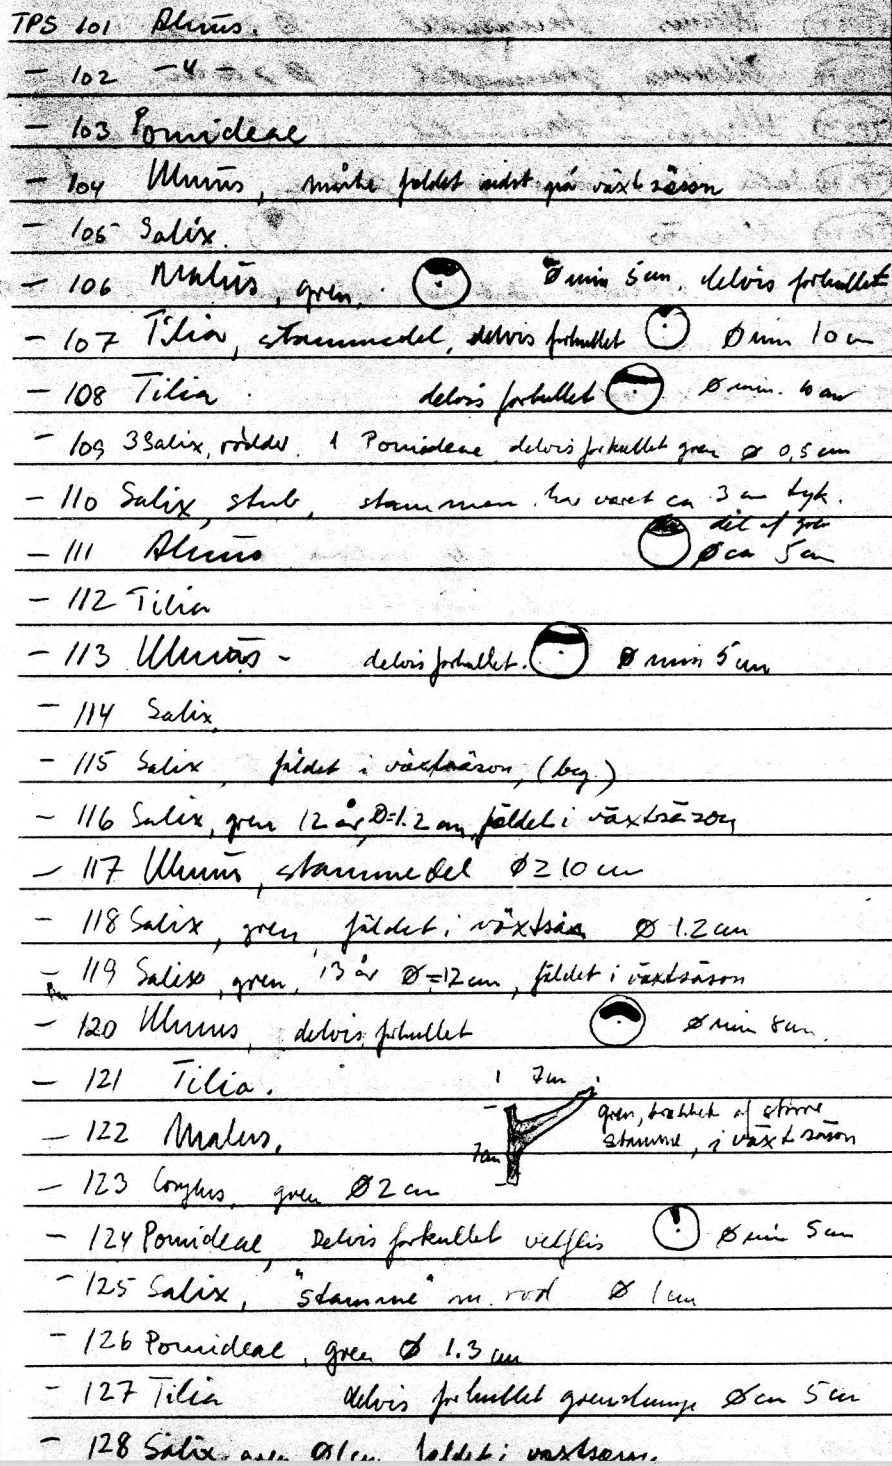 TPS 101 Alnus.
– 102 –"–
– 103 Pomideae
– 104 Ulmus, måske fældet sidst på växtsäson
– 105 Salix.
– 106 Malus, gren, Ø min 5 cm, delvis forkullet
– 107 Tilia, stammedel, delvis forkullet Ø min 10 cm
– 108 Tilia delvis forkullet Ø min. 10 cm
– 109 3 Salix, rødder. 1 Pomideae, delvis forkullet gren Ø 0,5 cm
– 110 Salix, stub, stammen har været ca 3 cm tyk.
– 111 Alnus del af gren Ø ca 5 cm
– 112 Tilia
– 113 Ulmus – delvis forkullet. Ø min 5 cm
– 114 Salix
– 115 Salix, fäldet i växtsäson, (beg.)
– 116 Salix, gren 12 år, Ø=1.2 cm, fäldet i växtsäson
– 117 Ulmus, stammedel Ø ≥ 10 cm
– 118 Salix, gren, fäldet i växtsäs Ø 1.2 cm
– 119 Salix, gren, 13 år Ø=12 cm, fäldet i växtsäson
– 120 Ulmus, delvis forkullet Ø min 8 cm.
– 121 Tilia. 7 cm
– 122 Malus, 7 cm gren, brækket af större
stamme, i växtsäson
– 123 Corylus, gren Ø 2 cm
– 124 Pomideae, Delvis forkullet vedflis Ø min 5 cm
– 125 Salix, "stamme" m. rod Ø 1 cm
– 126 Pomideae, gren Ø 1.3 cm
– 127 Tilia delvis forkullet grenstump Ø ca 5 cm
– 128 Salix, gren Ø 1 cm fäldet i växtsäson.